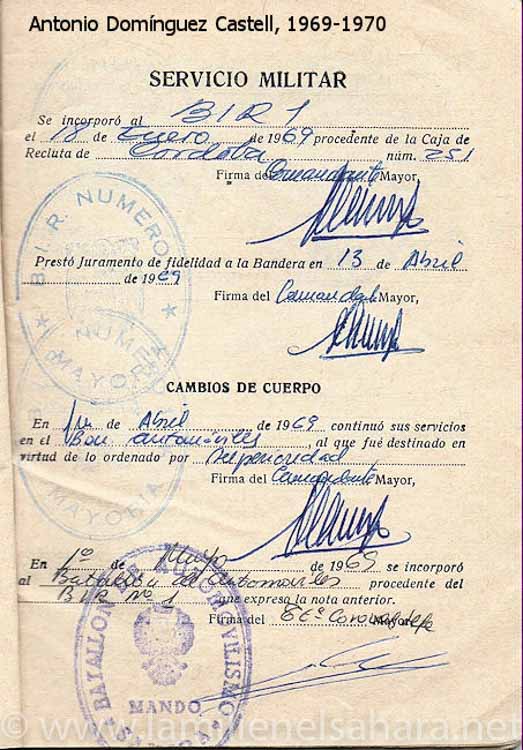 Antonio Domínguez Castell, 1969-1970
SERVICIO MILITAR
Se incorporó al BIR 1
el 18 de Enero de 1969 procedente de la Caja de
Recluta de Cordoba núm. 251
Firma del Comandante Mayor,
B. I. R. NUMERO
MAYORIA
Prestó Juramento de fidelidad a la Bandera en 13 de Abril
de 1969
Firma del Comandante Mayor,
CAMBIOS DE CUERPO
En de Abril de 1969 continuó sus servicios
en el Bon automóviles, al que fué destinado en
virtud de lo ordenado por Superioridad
Firma del Comandante Mayor,
MAYORIA
En 1º de Mayo de 1969 se incorporó
al Batallón de Automoviles procedente del
BIR nº 1 que expresa la nota anterior.
Firma del Mayor,
BATALLON DE AUTOMOVILISMO
MANDO
© www.lamilienelsahara.net